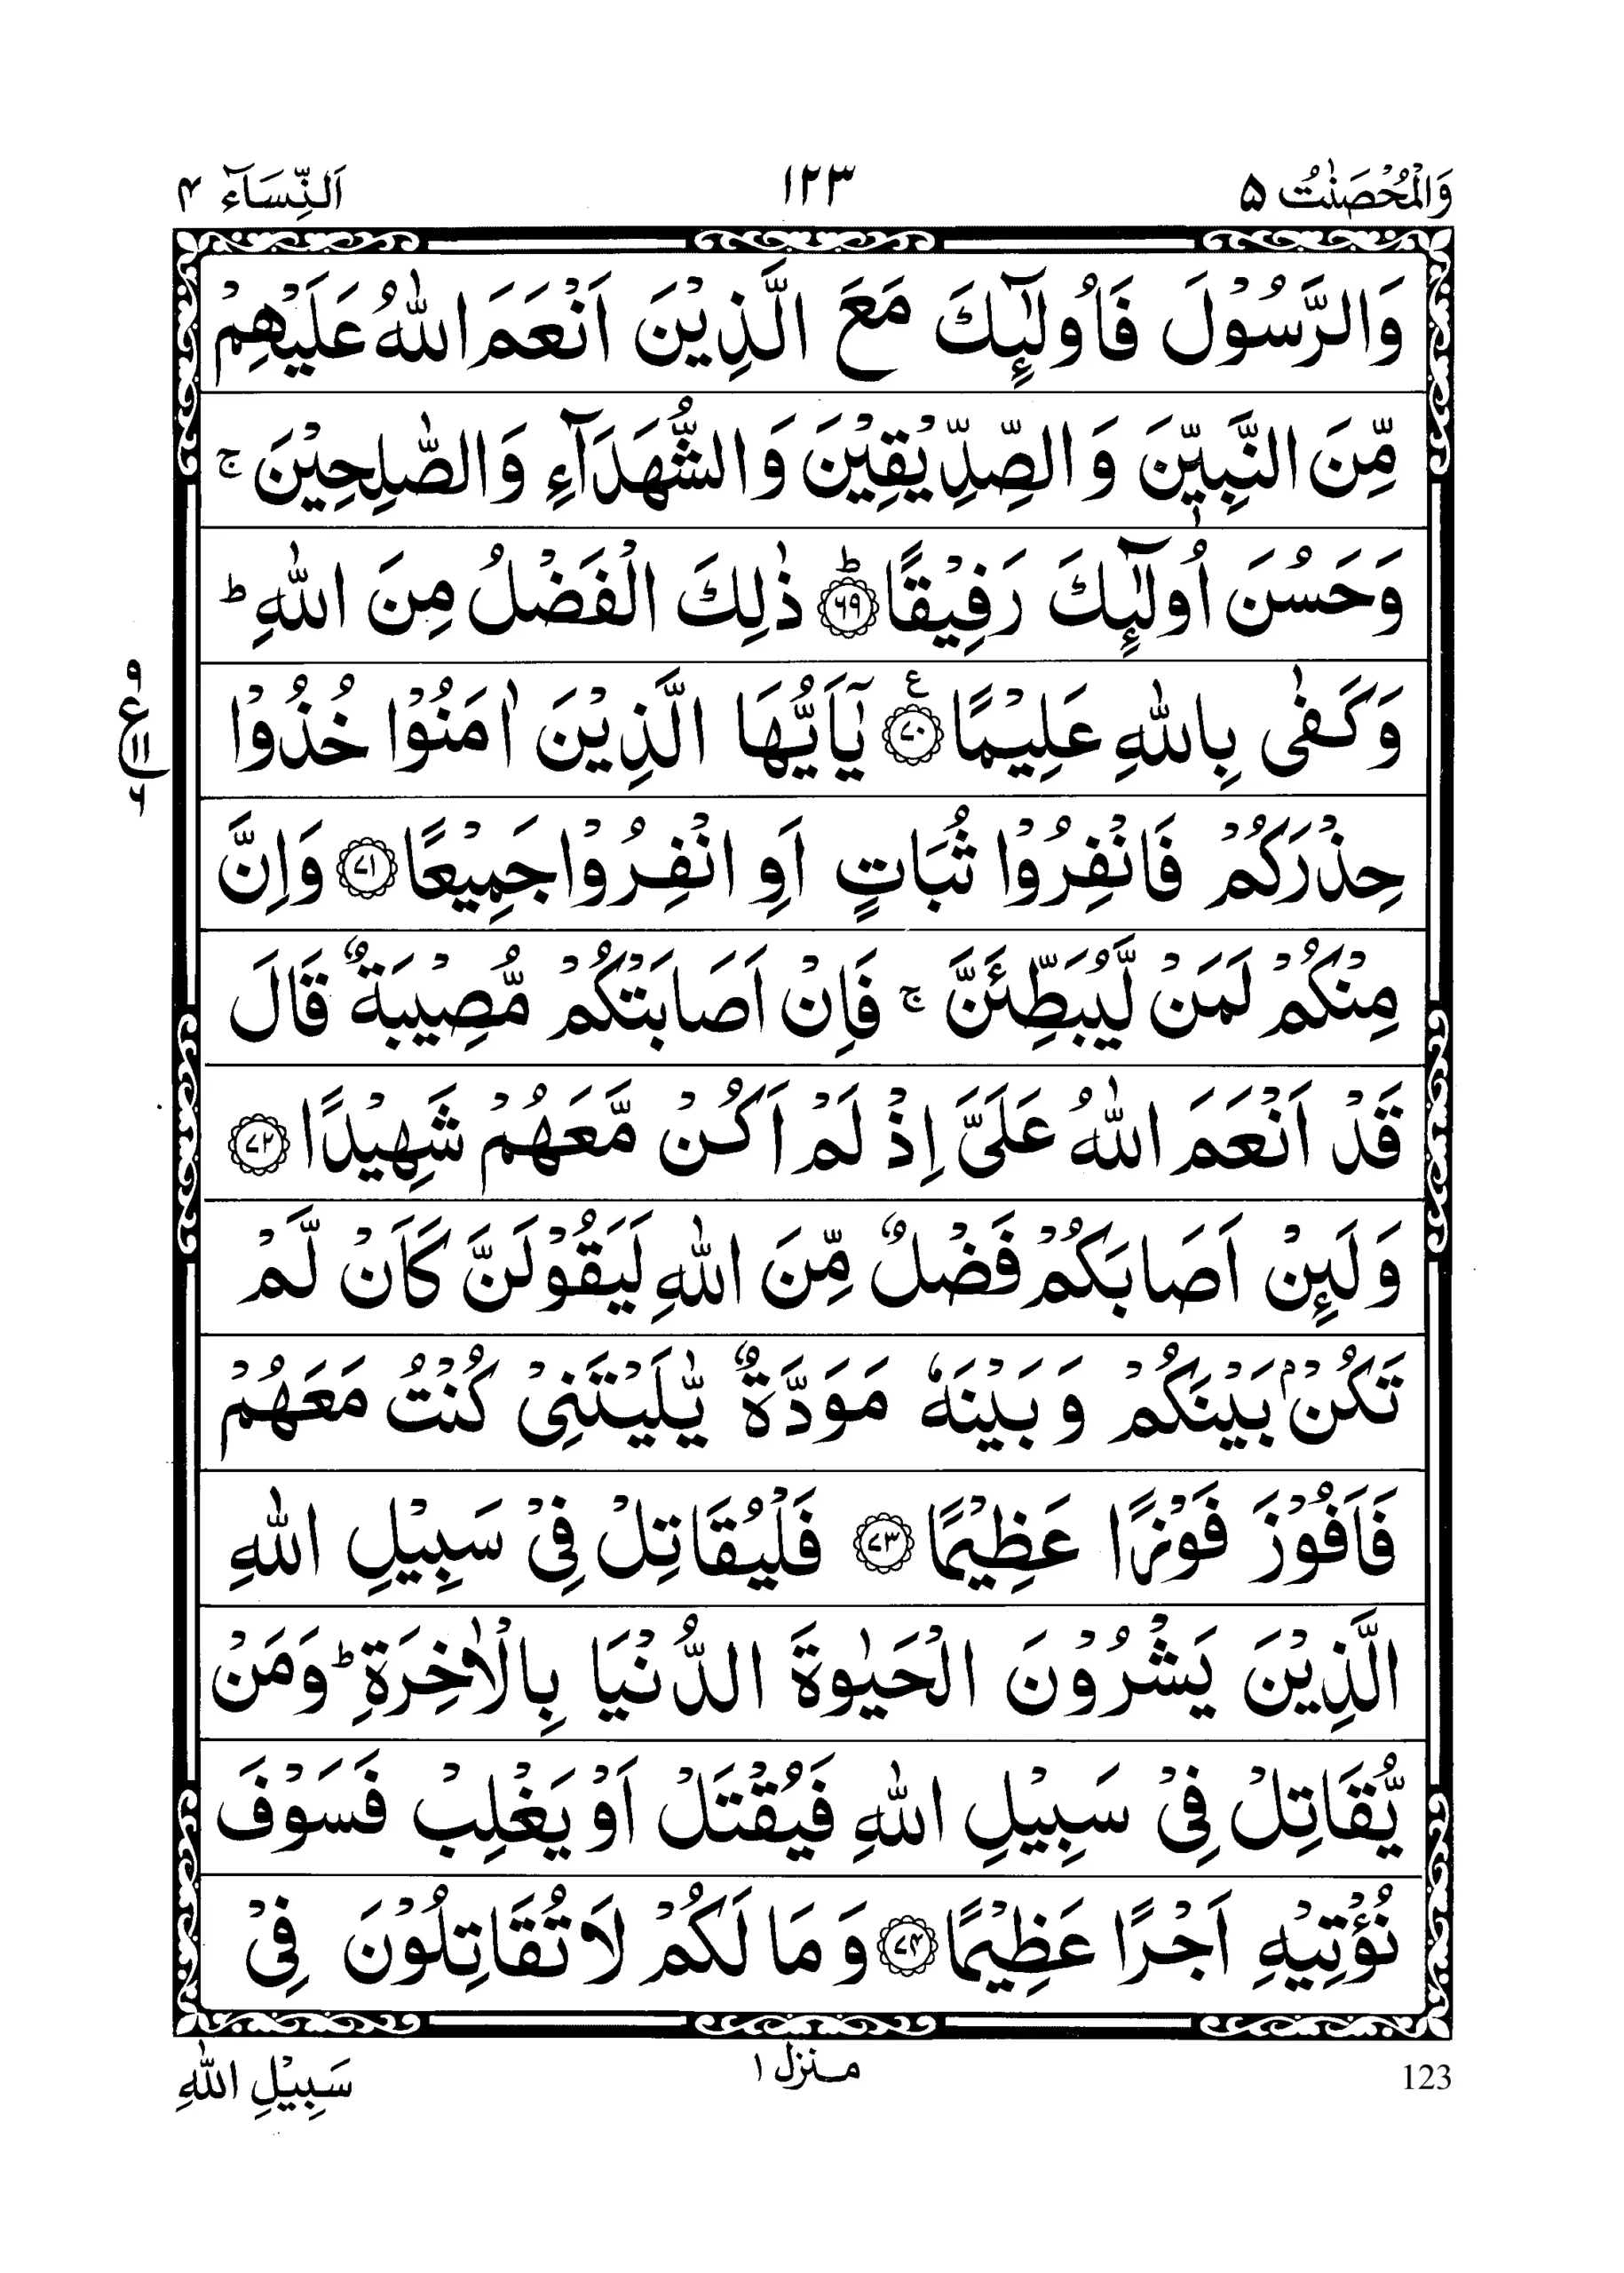 وَالْمُحْصَنٰتُ ۵ ۱۲۳ اَلنِّسَآء ۴
وَالرَّسُوْلَ فَاُولٰٓئِكَ مَعَ الَّذِيْنَ اَنْعَمَ اللّٰهُ عَلَيْهِمْ
مِّنَ النَّبِيّٖنَ وَالصِّدِّيْقِيْنَ وَالشُّهَدَآءِ وَالصّٰلِحِيْنَ ۚ
وَحَسُنَ اُولٰٓئِكَ رَفِيْقًا ؕ ﴿۶۹﴾ ذٰلِكَ الْفَضْلُ مِنَ اللّٰهِ ؕ
وَكَفٰى بِاللّٰهِ عَلِيْمًا ﴿۷۰﴾ ع يٰۤاَيُّهَا الَّذِيْنَ اٰمَنُوْا خُذُوْا
۹
ع
۱۱
۶
حِذْرَكُمْ فَانْفِرُوْا ثُبَاتٍ اَوِ انْفِرُوْا جَمِيْعًا ﴿۷۱﴾ وَاِنَّ
مِنْكُمْ لَمَنْ لَّيُبَطِّئَنَّ ۚ فَاِنْ اَصَابَتْكُمْ مُّصِيْبَةٌ قَالَ
قَدْ اَنْعَمَ اللّٰهُ عَلَىَّ اِذْ لَمْ اَكُنْ مَّعَهُمْ شَهِيْدًا ﴿۷۲﴾
وَلَئِنْ اَصَابَكُمْ فَضْلٌ مِّنَ اللّٰهِ لَيَقُوْلَنَّ كَاَنْ لَّمْ
تَكُنْۢ بَيْنَكُمْ وَبَيْنَهٗ مَوَدَّةٌ يّٰلَيْتَنِىْ كُنْتُ مَعَهُمْ
فَاَفُوْزَ فَوْزًا عَظِيْمًا ﴿۷۳﴾ فَلْيُقَاتِلْ فِىْ سَبِيْلِ اللّٰهِ
الَّذِيْنَ يَشْرُوْنَ الْحَيٰوةَ الدُّنْيَا بِالْاٰخِرَةِ ؕ وَمَنْ
يُّقَاتِلْ فِىْ سَبِيْلِ اللّٰهِ فَيُقْتَلْ اَوْ يَغْلِبْ فَسَوْفَ
نُؤْتِيْهِ اَجْرًا عَظِيْمًا ﴿۷۴﴾ وَمَا لَكُمْ لَا تُقَاتِلُوْنَ فِىْ
سَبِيْلِ اللّٰهِ
منزل ۱
123